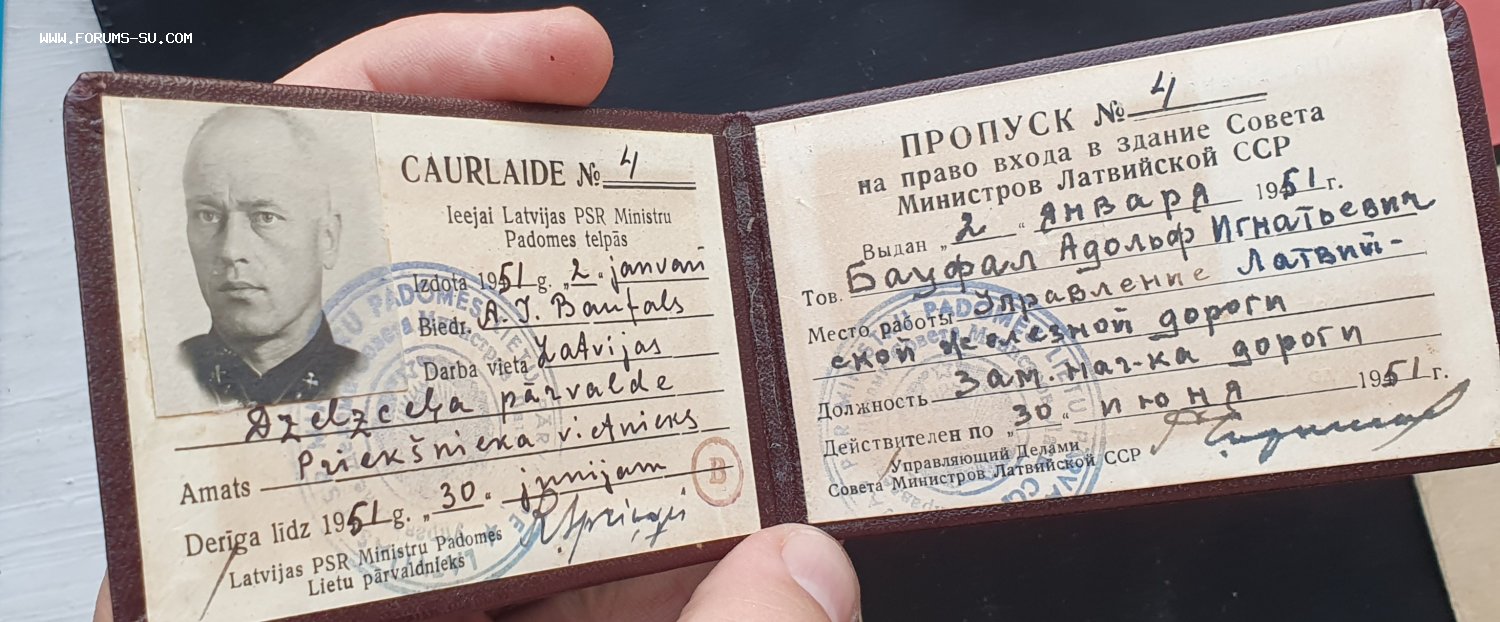 WWW.FORUMS-SU.COM
CAURLAIDE № 4
Ieejai Latvijas PSR Ministru
Padomes telpās
Izdota 1951 g. „2“ janvari
Biedr. A. J. Baufals
Darba vieta Latvijas
Dzelzceļa pārvalde
Priekšnieka vietnieks
Amats
Derīga līdz 1951 g. „30“ junijam
Latvijas PSR Ministru Padomes
Lietu pārvaldnieks
B
ПРОПУСК № 4
на право входа в здание Совета
Министров Латвийской ССР
Выдан „2“ января 1951 г.
Тов. Бауфал Адольф Игнатьевич
Место работы Управление Латвий-
ской железной дороги
Должность Зам. нач-ка дороги
Действителен по „30“ июня 1951 г.
Управляющий Делами
Совета Министров Латвийской ССР